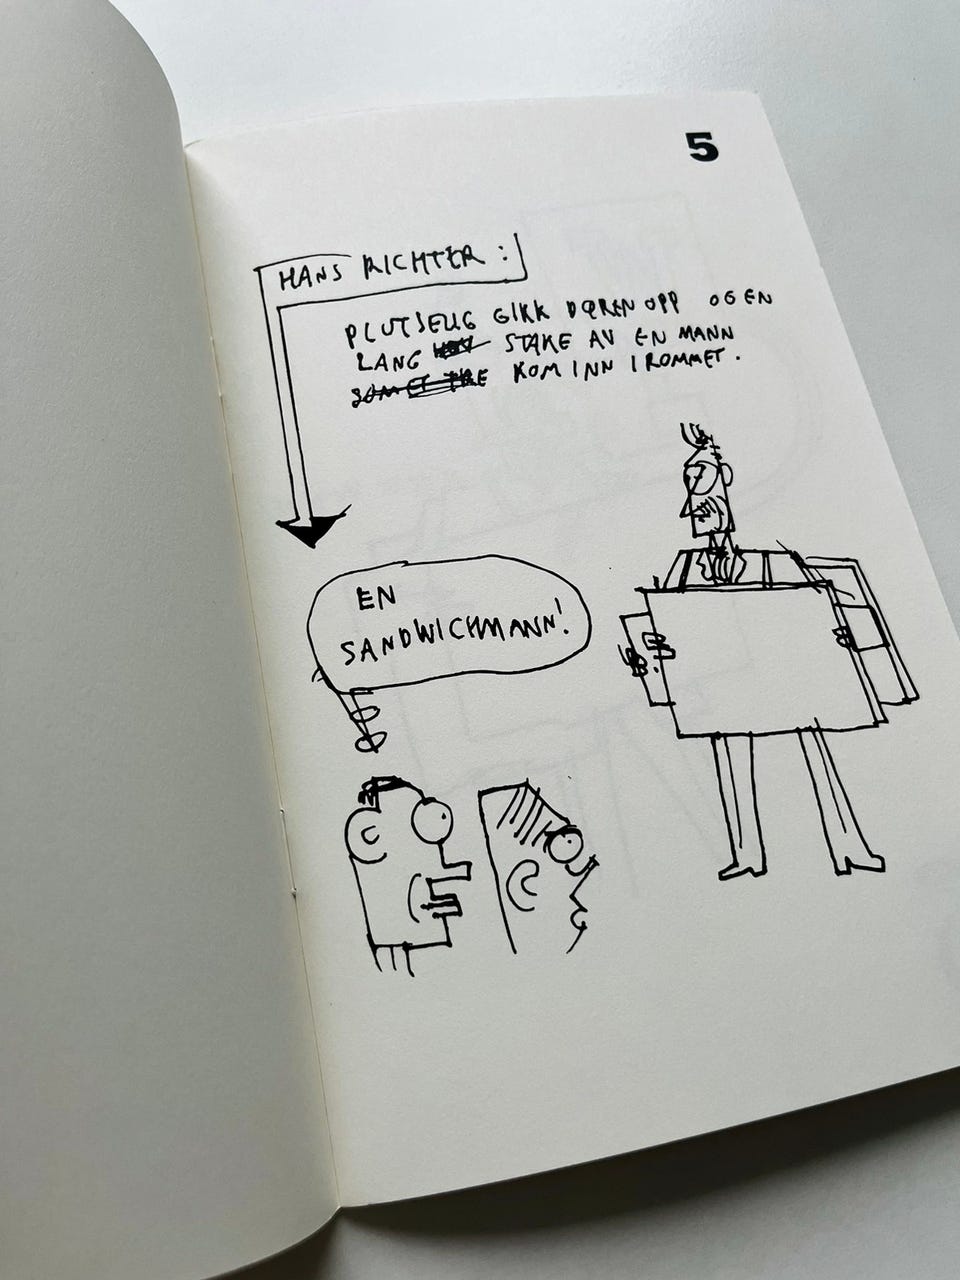 5
HANS RICHTER:
PLUTSELIG GIKK DØREN OPP OG EN
LANG STAKE AV EN MANN
KOM INN I ROMMET.
EN
SANDWICHMANN!